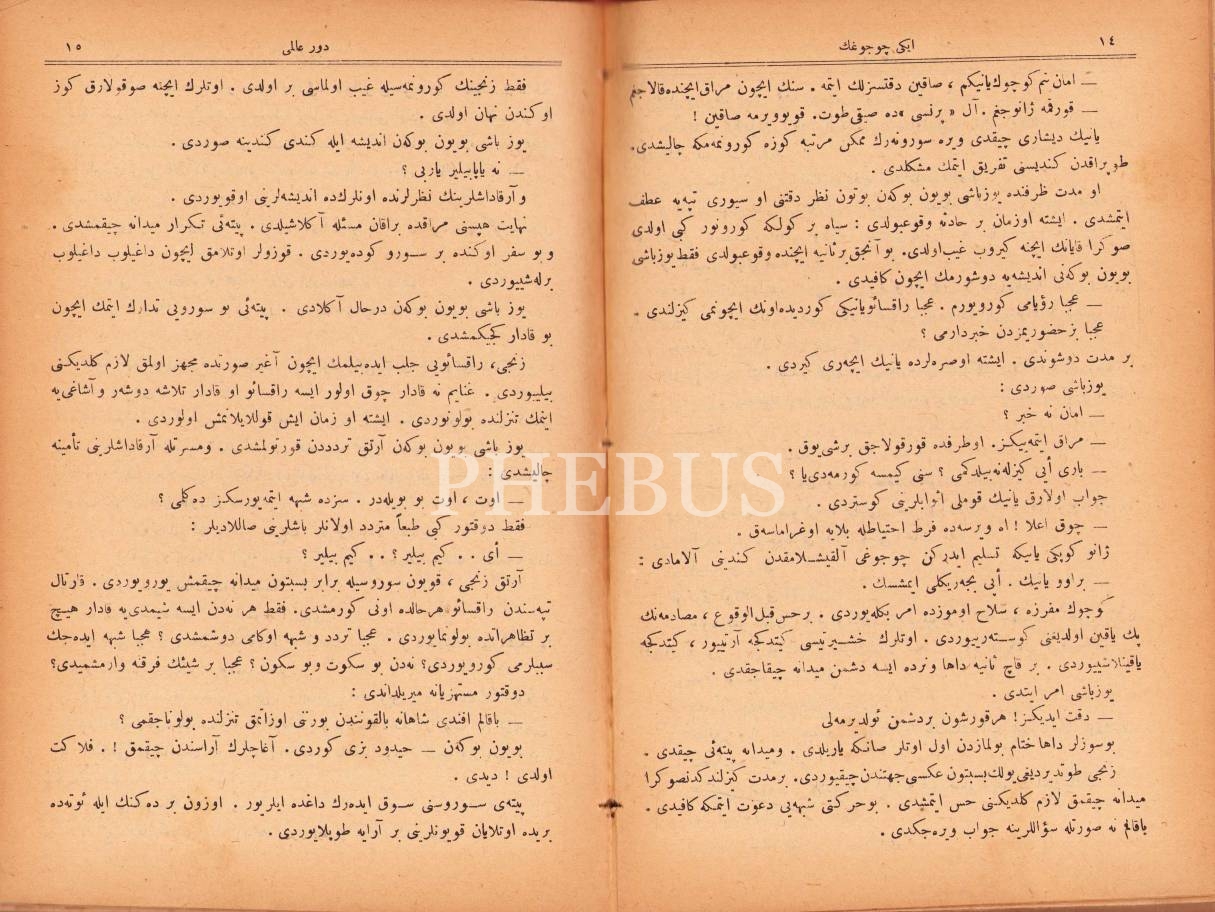 ١٤
ایکی چوجوغك
— امان بنم کوچوك یانیکم ، صاقین دقتسزلك ایتمه . سنك ایچون مراق ایچنده قالاجغم
— قورقمه ژانوجغم . آل « پرنسی »ده صیقی طوت. قویوویرمه صاقین !
یانیك دیشاری چیقدی ویره سورونه‌رك ممکن مرتبه کوزه کورونمه‌مکه چالیشدی.
طوپراقدن کندیسنی تفریق ایتمك مشکلدی .
او مدت ظرفنده یوزباشی بویون بوکه‌ن بوتون نظر دقتنی او سیوری تپه‌یه عطف
ایتمشدی . ایشته اوزمان بر حادثه وقوعبولدی : سیاه بر کولکه کورونور کبی اولدی
صوکرا قایانك ایچنه کیروب غیب اولدی. بو آنجق بر ثانیه ایچنده وقوعبولدی فقط یوزباشی
بویون بوکه‌نی اندیشه‌یه دوشورمك ایچون کافیدی .
— عجبا رؤیامی کورویورم . عجبا راقسائو یانیکی کوردیده اونك ایچونمی کیزلندی .
عجبا بزحضوریمزدن خبردارمی ؟
بر مدت دوشوندی . ایشته اوصره‌لرده یانیك ایچه‌ری کیردی .
یوزباشی صوردی :
— امان نه خبر ؟
— مراق ایتمه‌ییکز. اوطرفده قورقولاجق برشی یوق .
— باری أیی کیزله‌نه‌بیلدکمی ؟ سنی کیمسه کورمه‌دی یا ؟
جواب اولارق یانیك قوملی اثوابلرینی کوستردی .
— چوق اعلا ! اه ویرسه‌ده فرط احتیاطله بلایه اوغراماسه‌ق .
ژانو کوپکی یاسکه تسلیم ایدرکن چوجوغی آلقیشلامقدن کندینی آلامادی :
— براوو یانیك . أیی بجه‌ریکلی ایمشسك .
کوچوك مفرزه ، سلاح اوموزده امر بکله‌یوردی . برحس قبل الوقوع ، مصادمه‌نك
پك یاقین اولدیغنی کوسته‌رییوردی . اوتلرك خشیرتیسی کیتدکجه آرتییور ، کیتدکجه
یاقینلاشییوردی . بر قاچ ثانیه داها ونرده ایسه دشمن میدانه چیقاجقدی .
یوزباشی امر ایتدی .
— دقت ایدیکز! هرقورشون بردشمن ئولدیرمه‌لی
بوسوزلر داها ختام بولمازدن اول اوتلر صانکه یاریلدی . ومیدانه پیته‌ئی چیقدی .
زنجی طوتدیردیغی یولك بسبتون عکسی جهتندن چیقیوردی. برمدت کیزلندکدنصوکرا
میدانه چیقمق لازم کلدیکنی حس ایتمشدی . بوحرکتی شبهه‌یی دعوت ایتمکه کافیدی .
یاقالم نه صورتله سؤاللرینه جواب ویره‌جکدی .
١٥
دور عالمی
فقط زنجینك کورونمه‌سیله غیب اولماسی بر اولدی . اوتلرك ایچنه صوقولارق کوز
اوکندن نهان اولدی .
یوز باشی بویون بوکه‌ن اندیشه ایله کندی کندینه صوردی .
— نه یاپابیلیر یاربی ؟
و آرقاداشلرینك نظرلرنده اونلرك‌ده اندیشه‌لرینی اوقویوردی .
نهایت هپسنی مراقده براقان مسئله آکلاشیلدی . پیته‌ئی تکرار میدانه چیقمشدی .
و بو سفر اوکنده بر سورو کوده‌یوردی . قوزولر اوتلامق ایچون داغیلوب داغیلوب
برله‌شییوردی .
یوز باشی بویون بوکه‌ن درحال آکلادی . پیته‌ئی بو سورویی تدارك ایتمك ایچون
بو قادار کجیکمشدی .
زنجی، راقسائویی جلب ایده‌بیلمك ایچون آغیر صورتده مجهز اولمق لازم کلدیکنی
بیلییوردی . غنایم نه قادار چوق اولور ایسه راقسائو او قادار تلاشه دوشه‌ر و آشاغی‌یه
اینمك تنزلنده بولونوردی . ایشته او زمان ایش قوللایلانمش اولوردی .
یوز باشی بویون بوکه‌ن آرتق ترددن قورتولمشدی . ومسرتله آرقاداشلرینی تأمینه
چالیشدی :
— اوت ، اوت بو بویله‌در . سزده شبهه ایتمه‌یورسکز ده‌کلمی ؟
فقط دوقتور کبی طبعاً متردد اولانلر باشلرینی صاللادیلر :
— أی . . کیم بیلیر ؟ . . کیم بیلیر ؟
آرتق زنجی ، قویون سوروسیله برابر بسبتون میدانه چیقمش یورویوردی . قارتال
تپه‌سندن راقسائو هرحالده اونی کورمشدی. فقط هر نه‌دن ایسه شیمدی‌یه قادار هیچ
بر تظاهراتده بولونمایوردی . عجبا تردد و شبهه اوکامی دوشمشدی ؟ عجبا شبهه ایده‌جك
سببلرمی کورویوردی؟ نه‌دن بو سکوت وبو سکون ؟ عجبا بر شیئك فرقنه وارمشمیدی؟
دوقتور مستهزیانه میریلداندی :
— باقالم افندی شاهانه بالقونندن بورننی اوزاتمق تنزلنده بولوناجقمی ؟
بویون بوکه‌ن — حیدود بزی کوردی. آغاچلرك آراسندن چیقمق ! . فلاکت
اولدی ! دیدی .
پیته‌ی سوروسنی سوق ایده‌رك داغده ایلریور . اوزون بر ده‌کنك ایله ئوته‌ده
بریده اوتلایان قویونلرینی بر آرایه طوپلایوردی .
PHEBUS